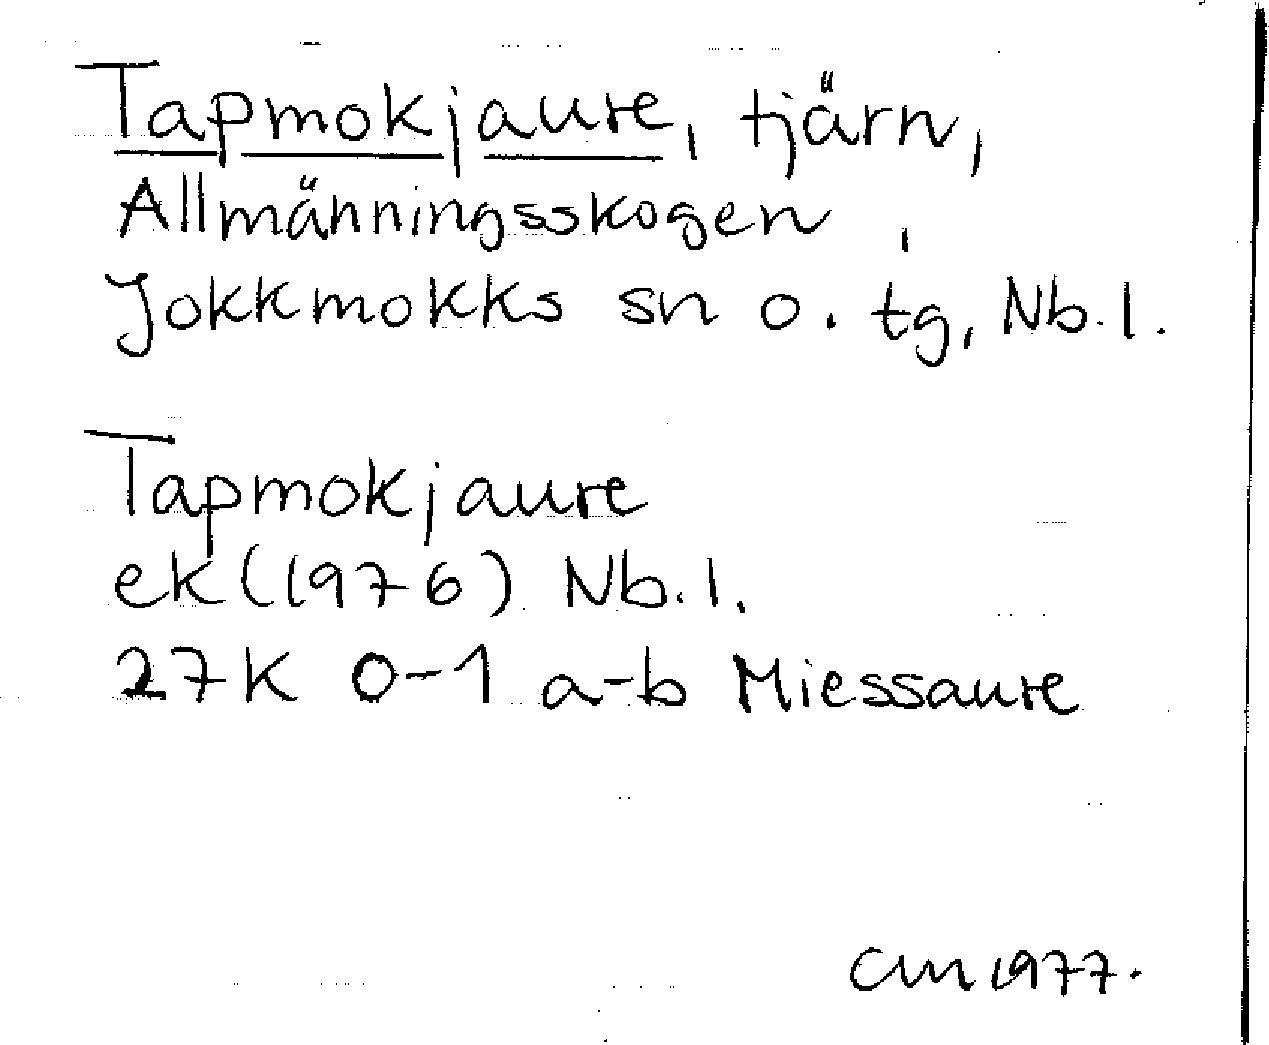 Tapmokjaure, tjärn,
Allmänningsskogen,
Jokkmokks sn o. tg, Nb.l.
Tapmokjaure
ek (1976) Nb.l.
27K 0-1 a-b Miessaure
CM 1977.